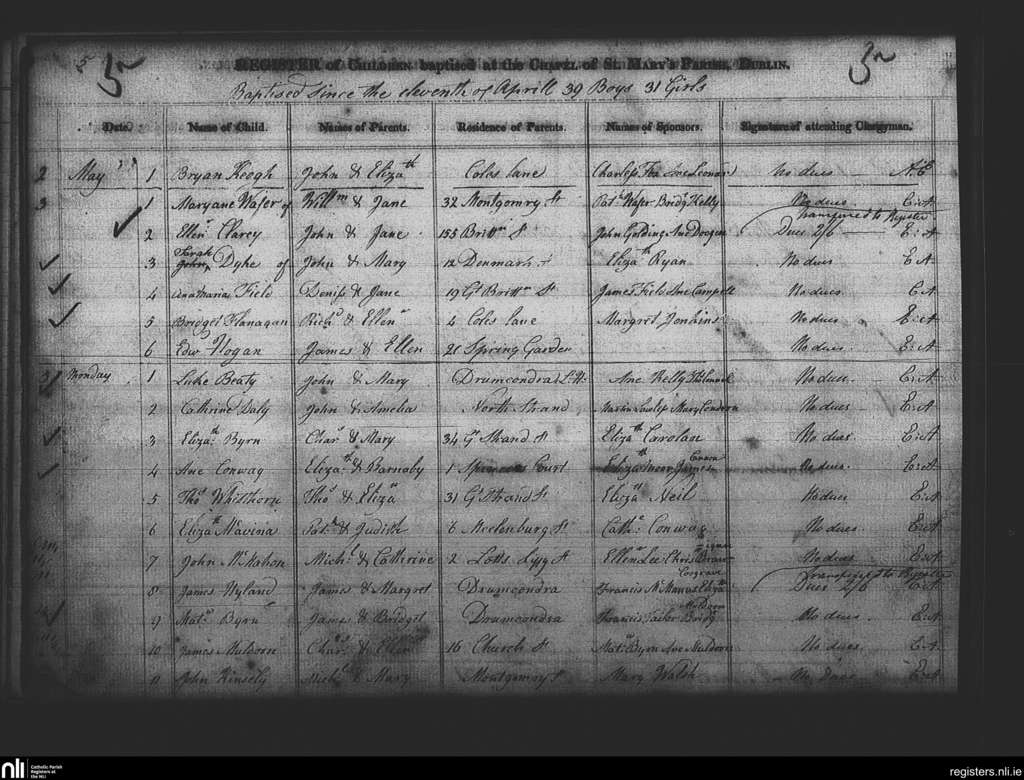 5 5 5
REGISTER of CHILDREN baptised at the CHAPEL of ST. MARY'S PARISH, DUBLIN.
Baptised since the eleventh of Aprill 39 Boys 31 Girls
Date. Name of Child. Names of Parents. Residence of Parents. Names of Sponsors. Signature of attending Clergyman.
2 May 1 Bryan Keogh John & Elizath Coles lane Charles Fox Ane Leonard No dues
3 1 Maryane Wafer of Willm & Jane 32 Montgomry St Patk Wafer Bridy Kelly No dues. E:A
transferred to Register
2 Ellen Clarey John & Jane 155 Brittn St John Golding Ane Dues 2/6 E:A
Sarah
3 John Dyke of John & Mary 12 Denmark St Elizath Ryan No dues E:A
4 Field Deniss & Jane 19 Gt Brittn St James Field Ane Campell No dues. E:A
5 Bridget Flanagan Richd & Ellen 4 Coles lane Margret Jenkins No dues E:A
6 Edwd Hogan James & Ellen 21 Spring Garden No dues. E:A
3 Monday 1 Luke Beaty John & Mary Drumcondra Ane Kelly No dues. E:A
2 Cathrine Daly John & Amelia North Strand Mary No dues E:A
3 Elizath Byrn Chars & Mary 34 Gt Strand St Elizath Carolan No dues. E:A
4 Ane Conway Elizath & Barnaby 1 Spencers Court James No dues. E:A
5 Thos Whitthorn Thos & Eliza 31 G Strand St Eliza Neil No dues E:A
6 Eliza Patk & Judith 6 Mecklenburg St Cathe Conway No dues. E:A
7 John McMahon Michl & Catherine 2 Lotts St Ellen Lee Chris No dues E:A
Cosgrave transferred to Register
8 James Hyland James & Margret Drumcondra Francis McManus Elizath Dues 2/6 E:A
Muldoon
9 Mats Byrn James & Bridget Drumcondra Francis Tailor Bridy No dues. E:A
10 James Muldoon Chars & Ellen 16 Church St Mats Byrn Ane Muldoon No dues. E:A
11 John Kinsely Michl & Mary Montgomry St Mary Walsh No dues E:A
nli Catholic Parish
Registers at
the NLI
registers.nli.ie